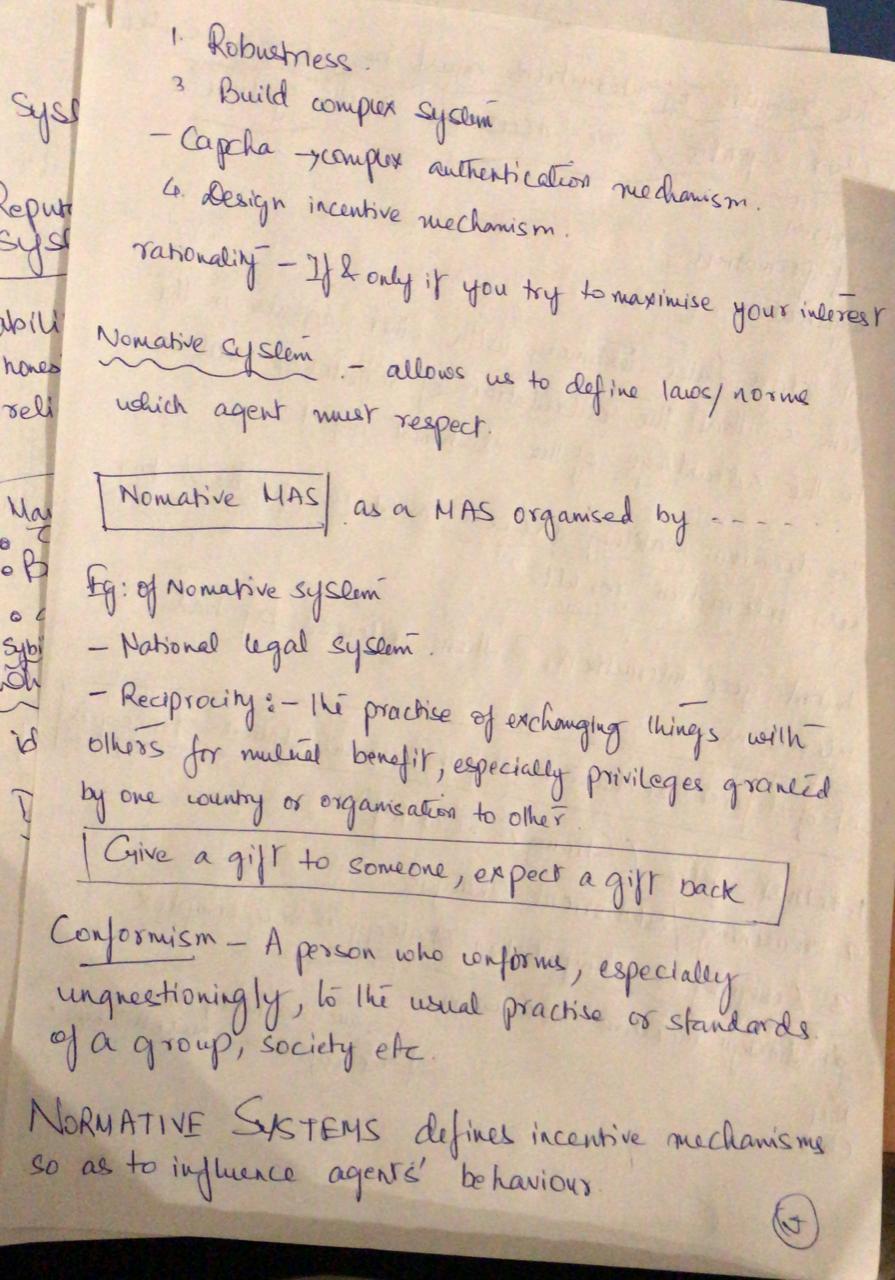 1. Robustness.
3 Build complex system
- Capcha → complex authentication mechanism.
4. Design incentive mechanism.
rationality - If & only if you try to maximise your interest
Nomative system :- allows us to define laws/norms
which agent must respect.
Nomative MAS as a MAS organised by - - - - . .
Eg: of Nomative system
- National legal system.
- Reciprocity :- The practise of exchanging things with
others for mutual benefit, especially privileges granted
by one country or organisation to other
Give a gift to someone, expect a gift back
Conformism - A person who conforms, especially
unquestioningly, to the usual practise or standards
of a group, society etc.
NORMATIVE SYSTEMS defines incentive mechanisms
so as to influence agents' behaviour